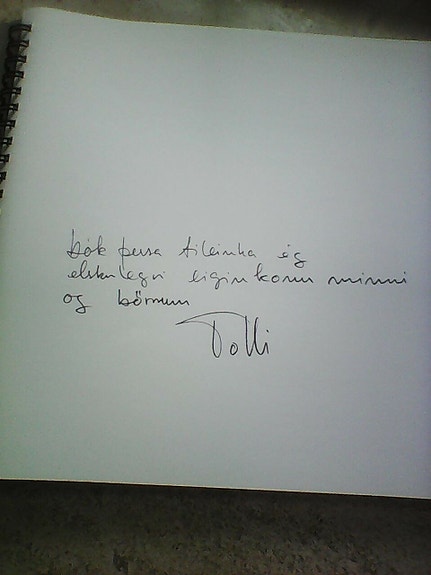 bók þessa tileinka ég
elskulegri eiginkonu minni
og börnum
Tolli